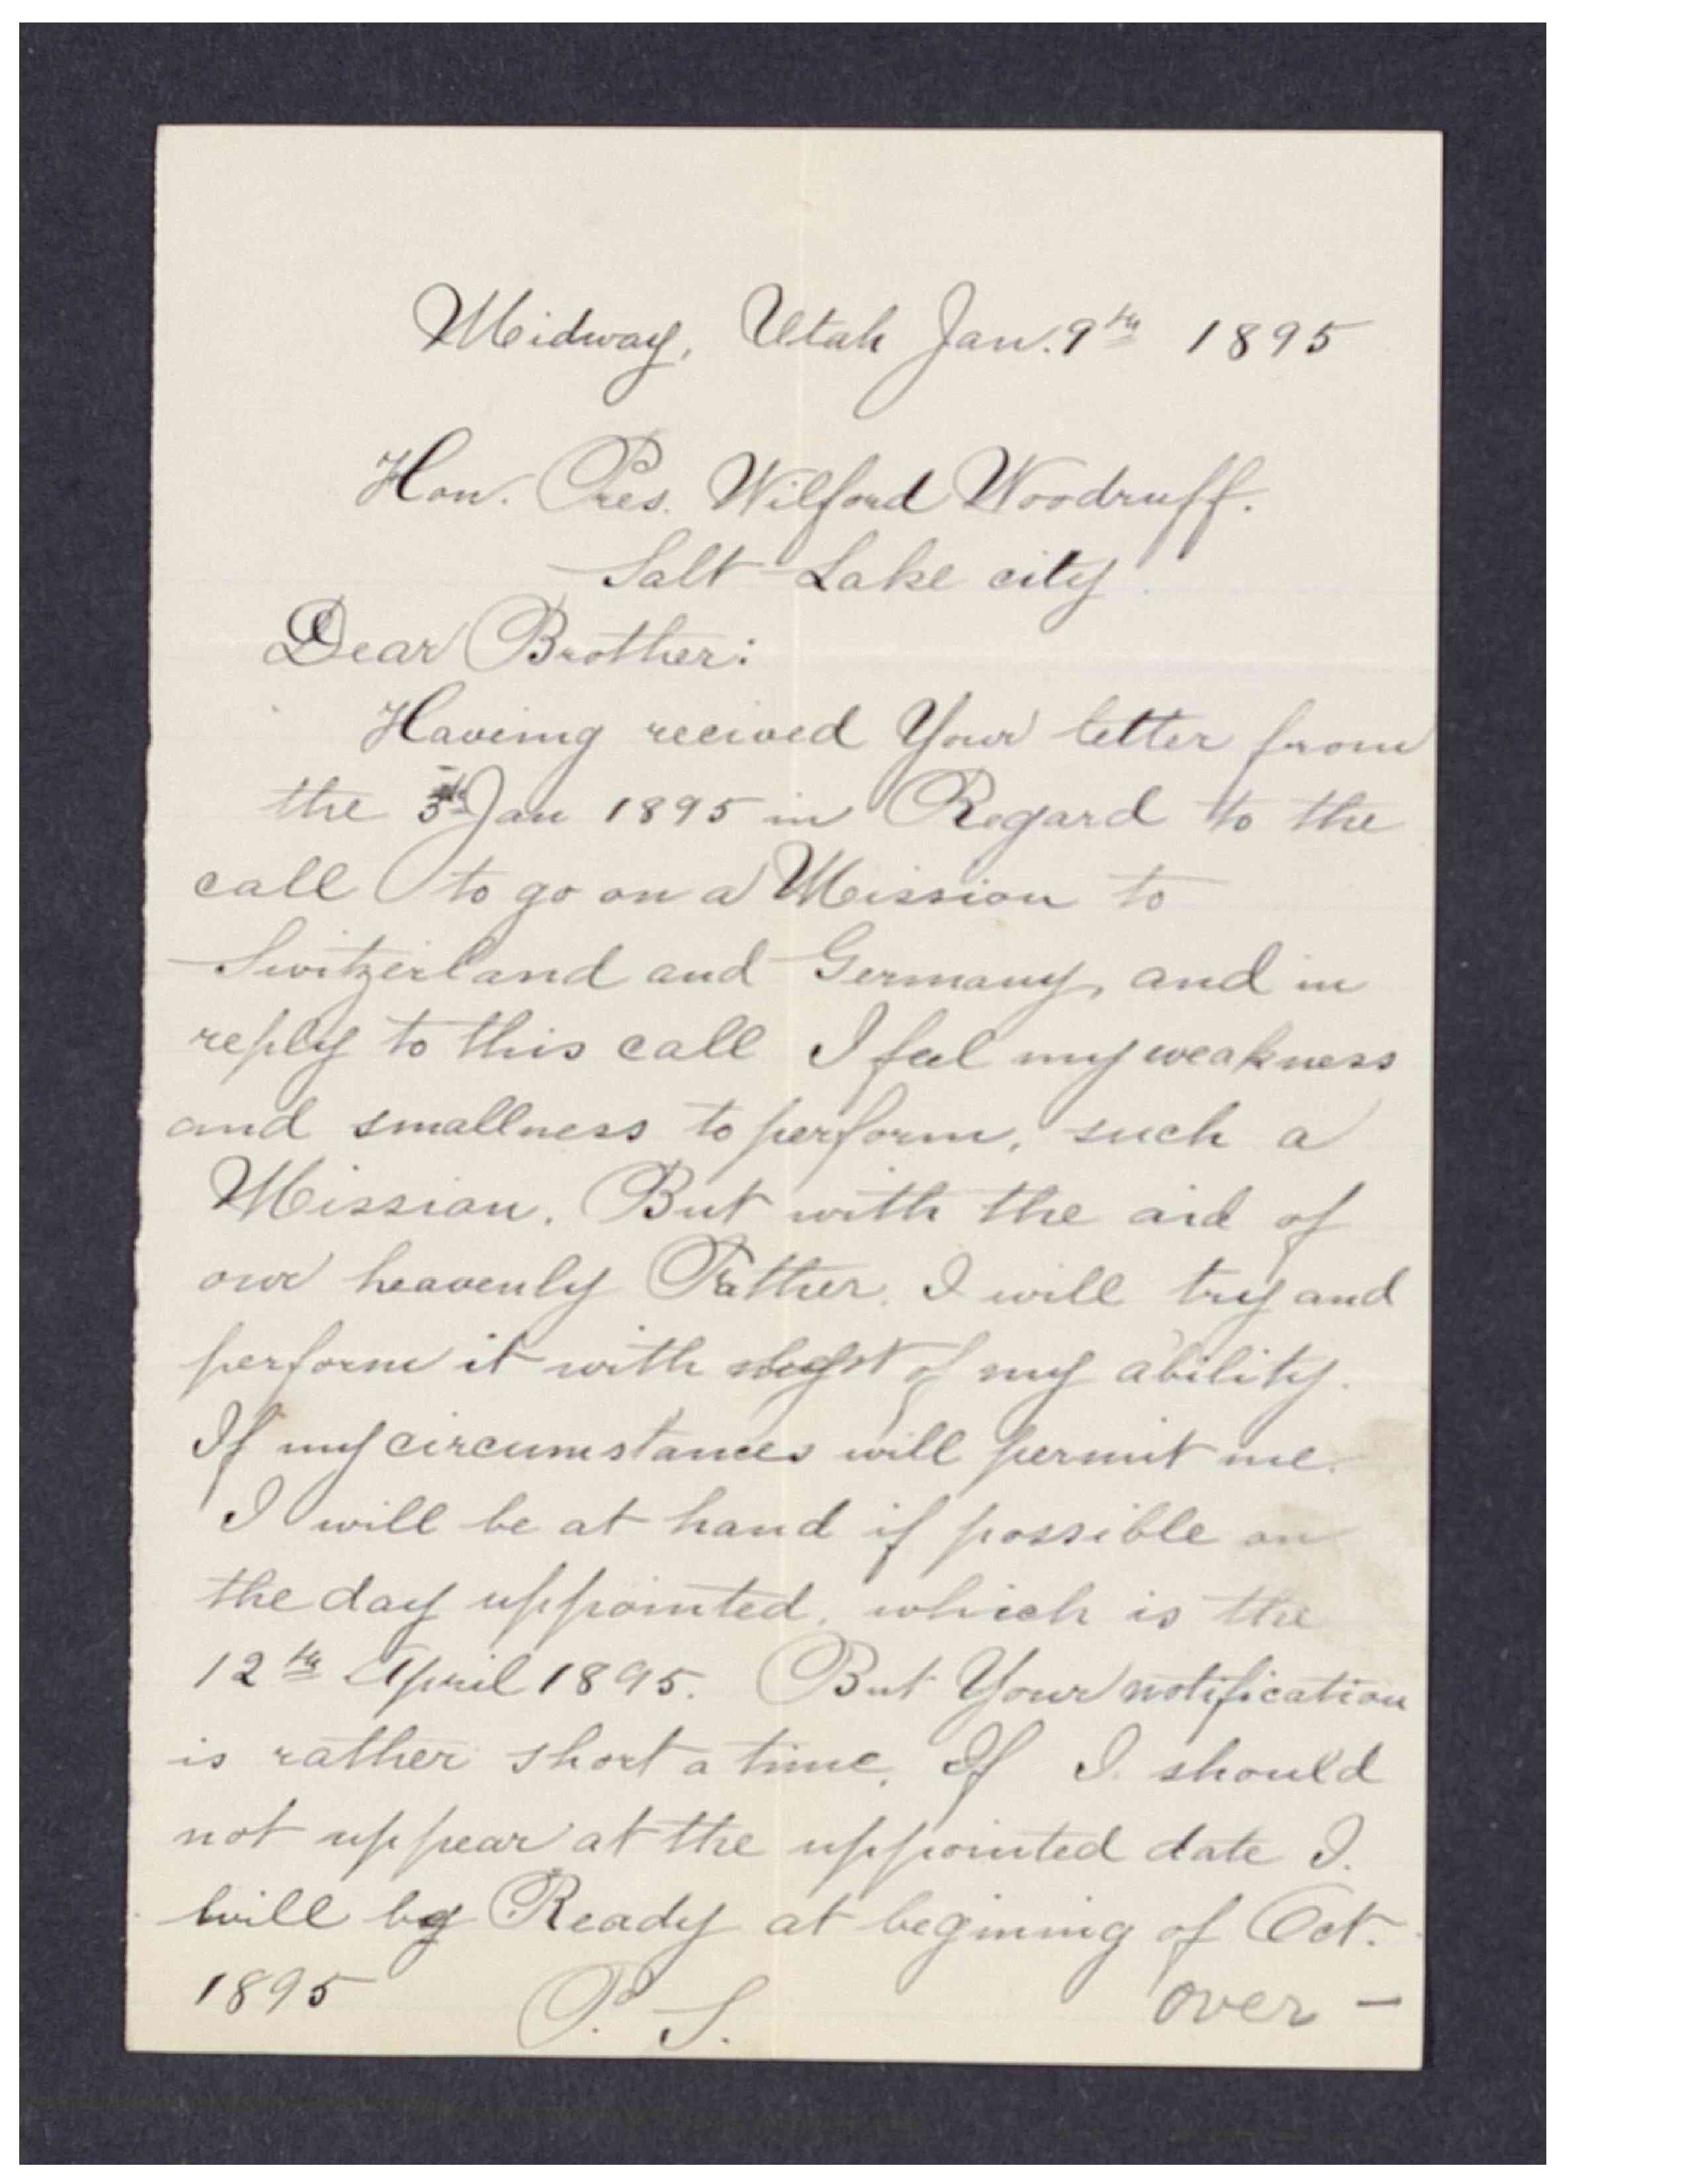 Midway, Utah Jan. 9th 1895
Hon. Pres. Wilford Woodruff.
Salt Lake city
Dear Brother:
Haveing recived Your letter from
the 5th Jan 1895 in Regard to the
call to go on a Mission to
Switzerland and Germany, and in
reply to this call I feel my weakness
and smallness to perform, such a
Mission. But with the aid of
our heavenly Father. I will try and
perform it with of my ability.
If my circumstances will permit me.
I will be at hand if possible on
the day uppointed, which is the
12th April 1895. But Your notification
is rather short a time. If I should
not uppear at the uppointed date I.
will be Ready at begining of Oct.
1895 P. S. over –